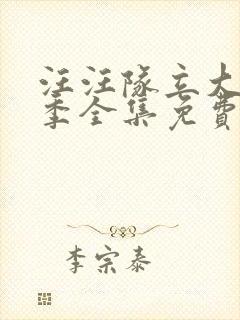 汪汪隊立大
季全集免費
李宗泰